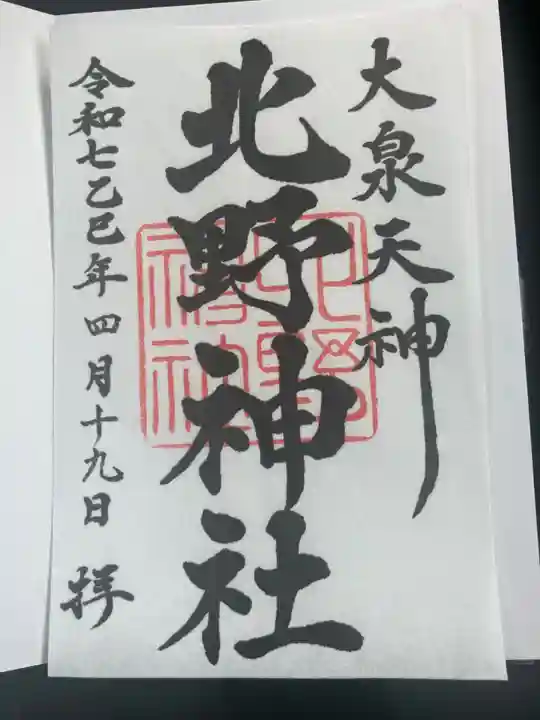 大泉天神
北野神社
北野
神社
令和七乙巳年四月十九日 拝